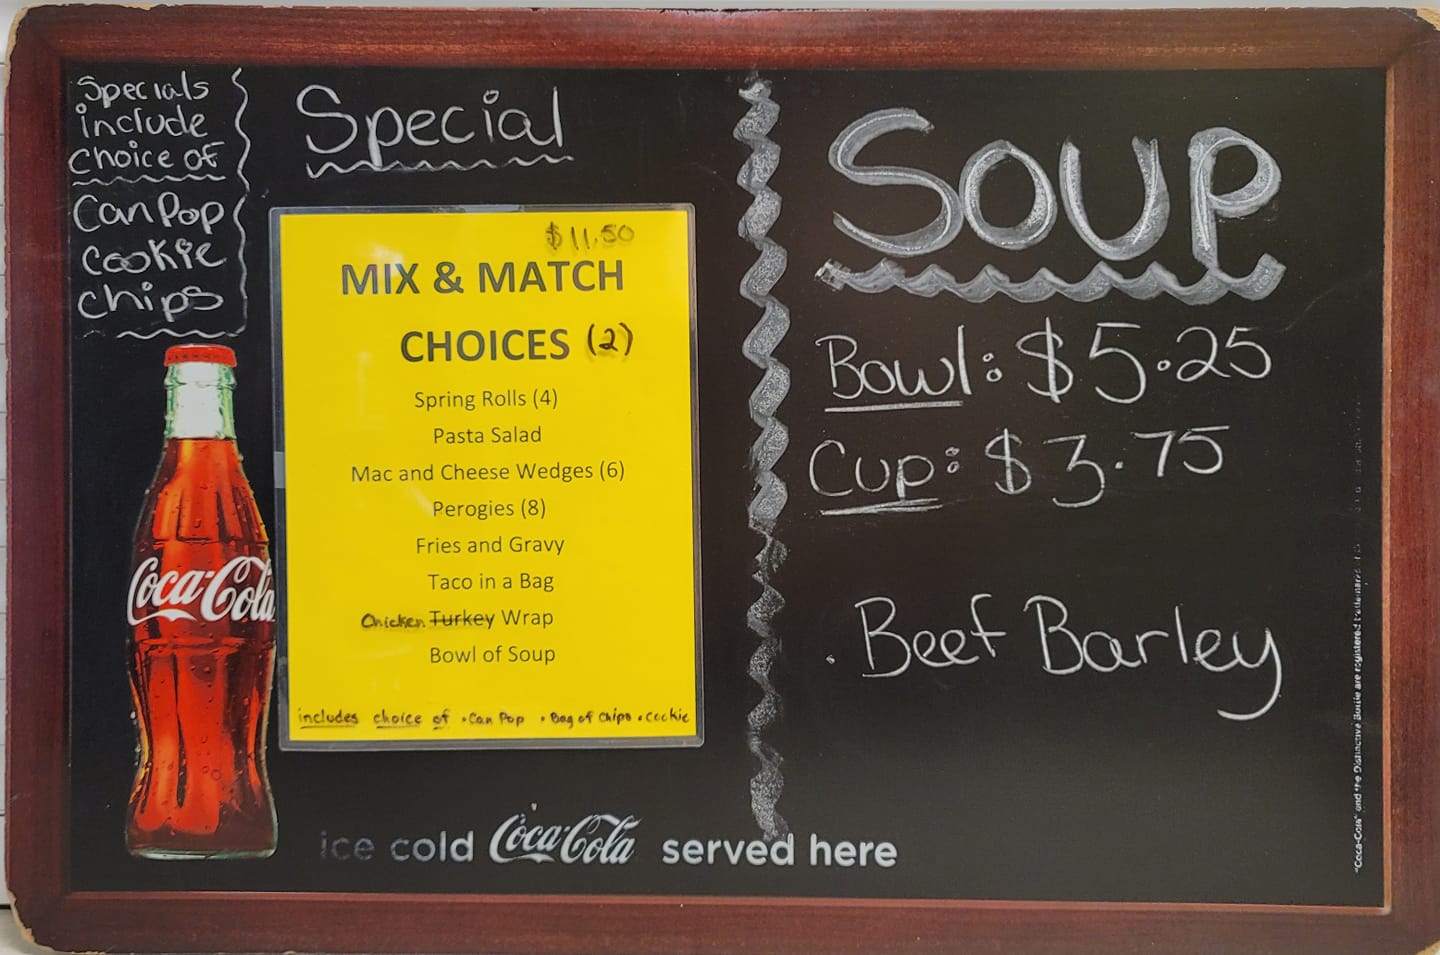 Specials
include
choice of
Can Pop
Cookie
chips
Special
$11.50
MIX & MATCH
CHOICES (2)
Spring Rolls (4)
Pasta Salad
Mac and Cheese Wedges (6)
Perogies (8)
Fries and Gravy
Taco in a Bag
Chicken Turkey Wrap
Bowl of Soup
includes choice of • Can Pop • Bag of Chips • Cookie
SOUP
Bowl: $5.25
Cup: $3.75
• Beef Barley
Coca-Cola
ice cold Coca-Cola served here
"Coca-Cola" and the Distinctive Bottle are registered trademarks